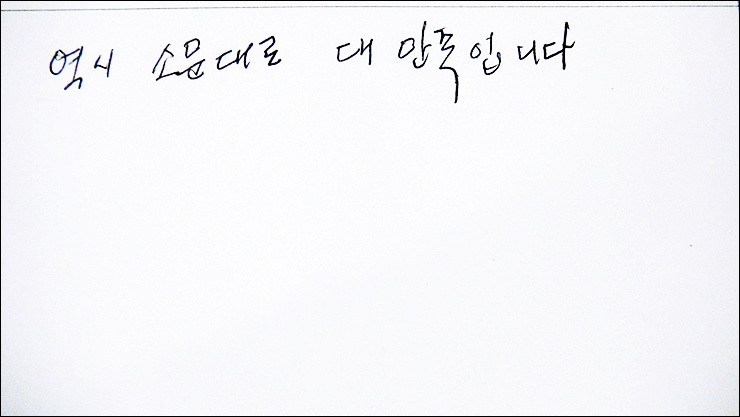 역시 소문대로 대 만폭입니다